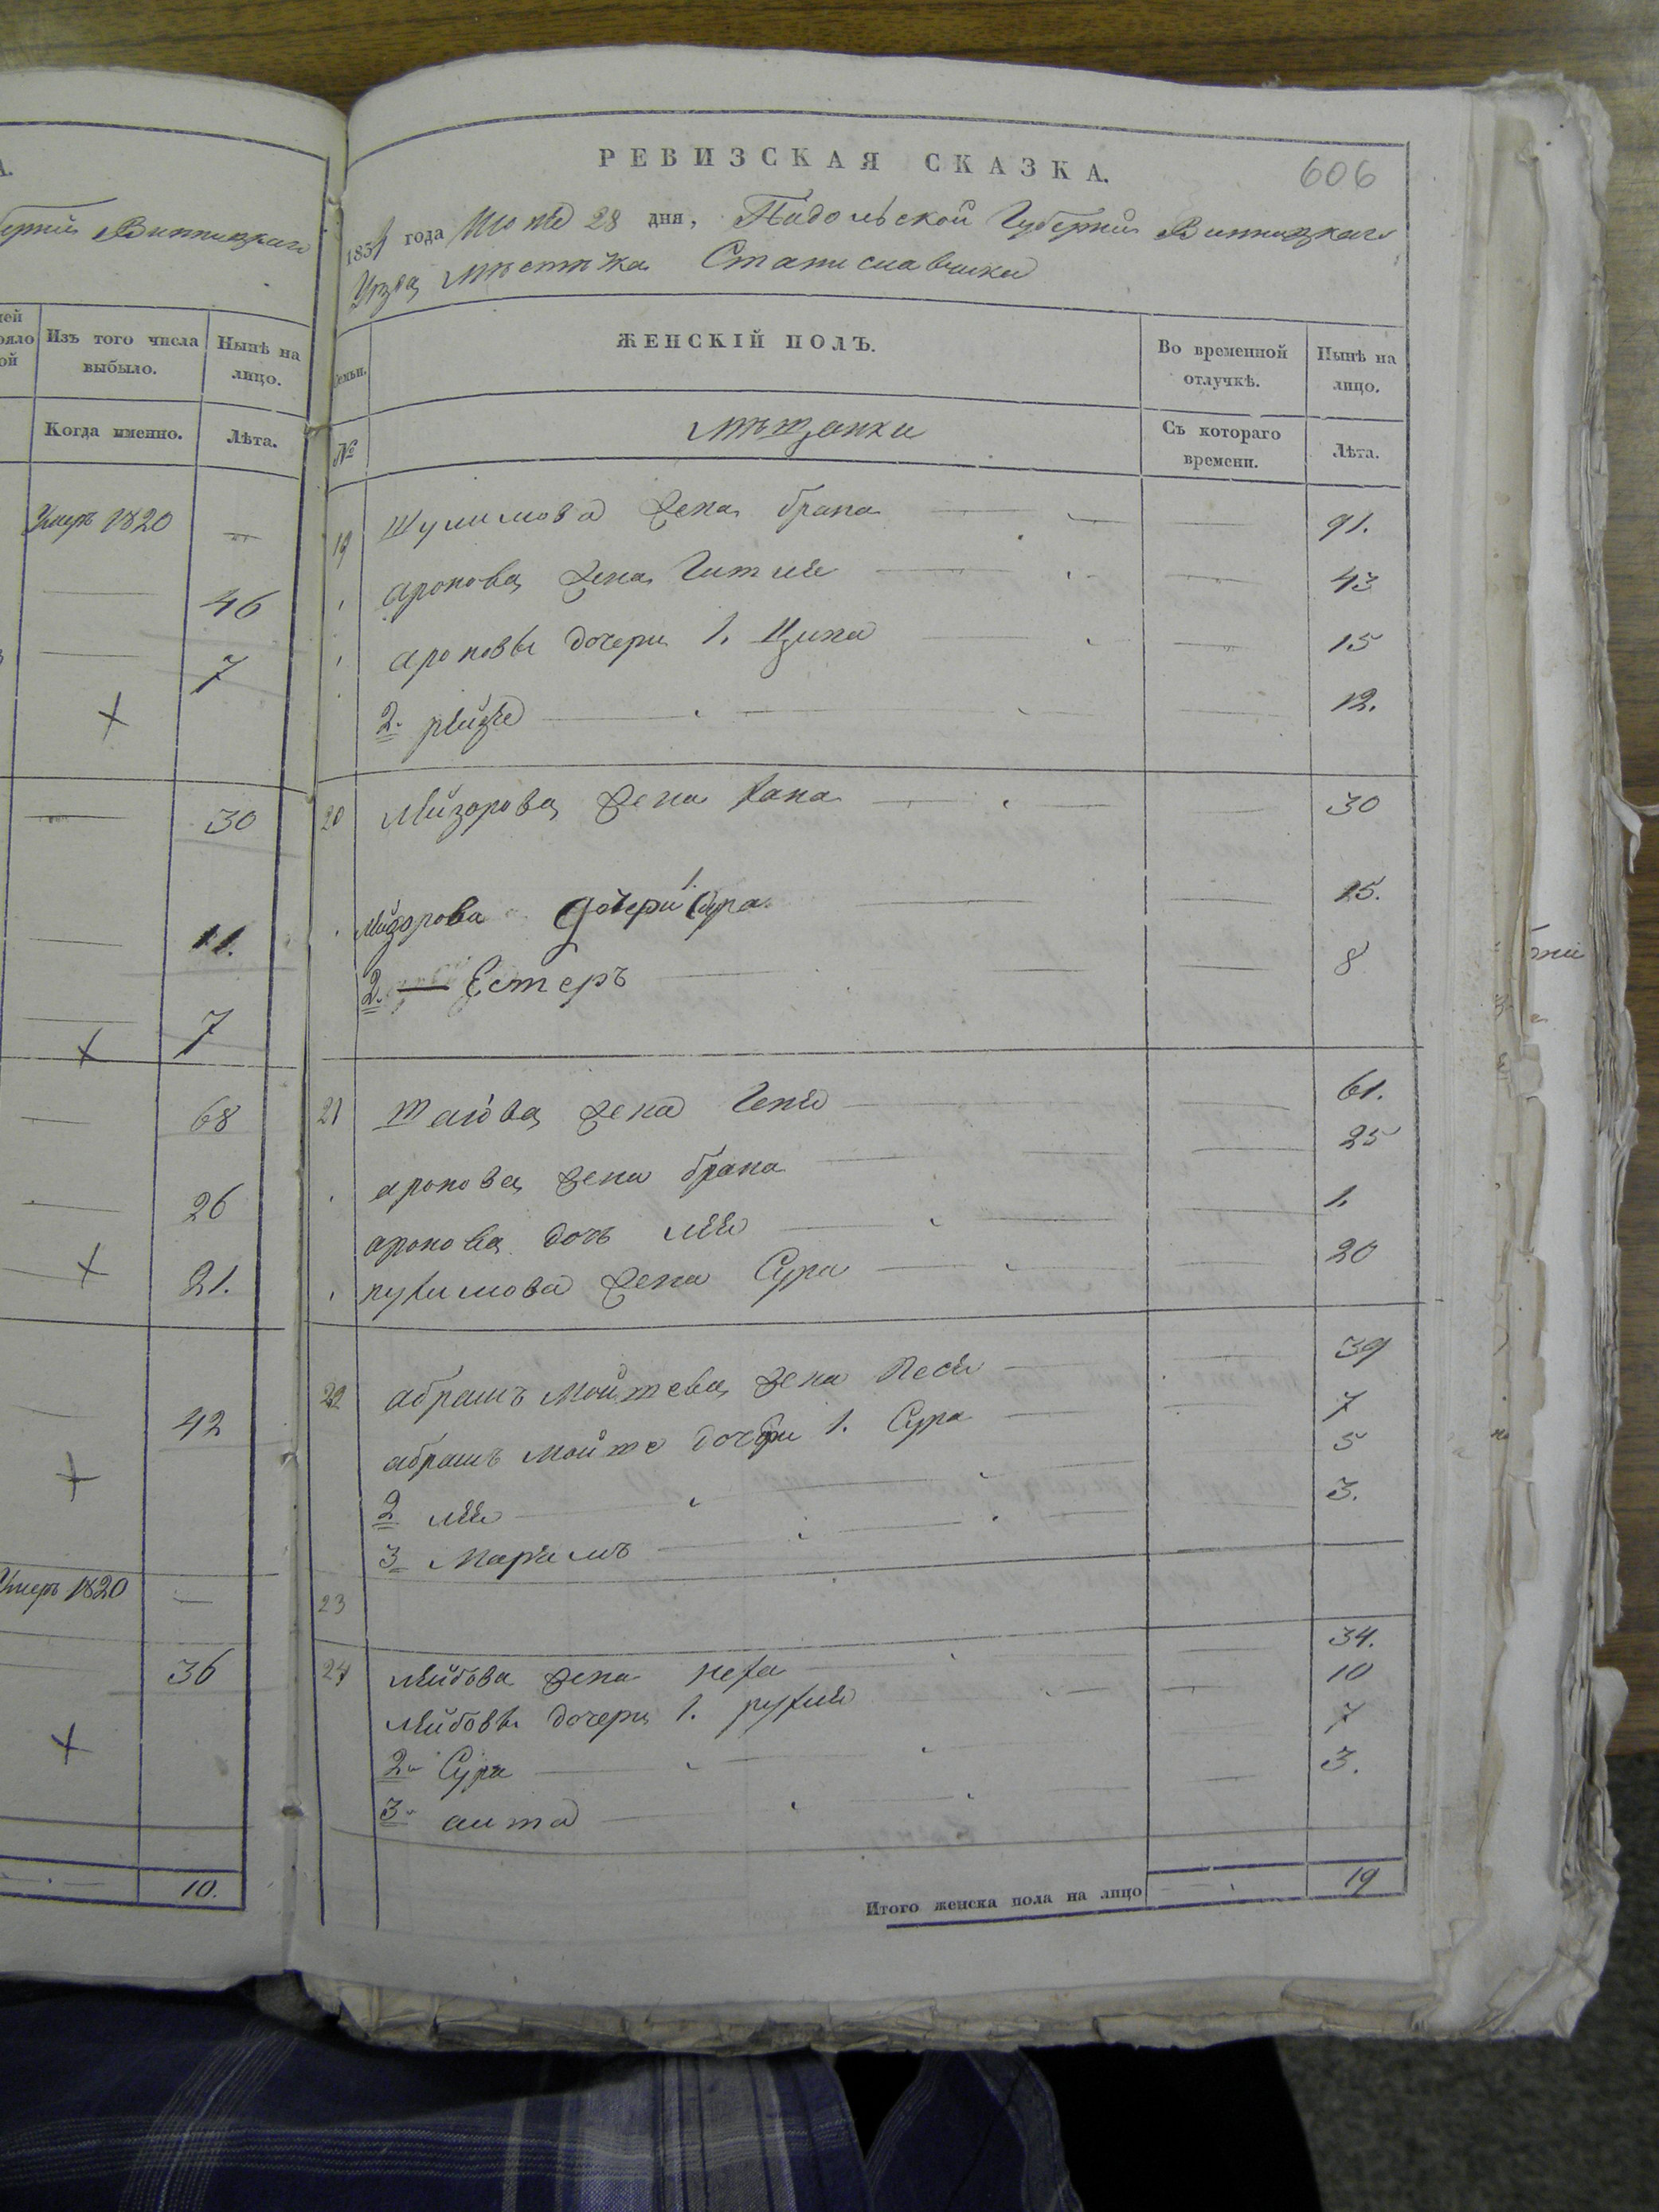 А.
Винницкаго
Изъ того числа выбыло.
Нынѣ на лицо.
Когда именно.
Лѣта.
Умеръ 1820 —
46
7
30
11.
7
68
26
21.
42
Умеръ 1820 —
36
10.
РЕВИЗСКАЯ СКАЗКА.
606
года 28 дня, Падольской Губерніи Винницкаго
Уѣзда мѣстечка Станиславчика
Семьи.
ЖЕНСКІЙ ПОЛЪ.
Во временной отлучкѣ.
Нынѣ на лицо.
№
мѣщанки
Съ котораго времени.
Лѣта.
19 Шулимова жена брана 91.
аронова жена Гитля 43
ароновы дочери 1. Ципа 15
2. рейзя 12.
20 Лейзорова жена хана 30
Лейзорова дочери 1. Сура 15.
2. Естеръ 8
21 жена Геня 61.
аронова жена брана 25
аронова дочь лея 1.
нухимова жена Сура 20
22 абрамъ мойшева жена Песя 39
абрамъ мойше дочери 1. Сура 7
2 лея 5
3 Маримъ 3.
23
24 лейбова жена неха 34.
лейбовы дочери 1. рухля 10
2. Сура 7
3. 3.
Итого женска пола на лицо 19